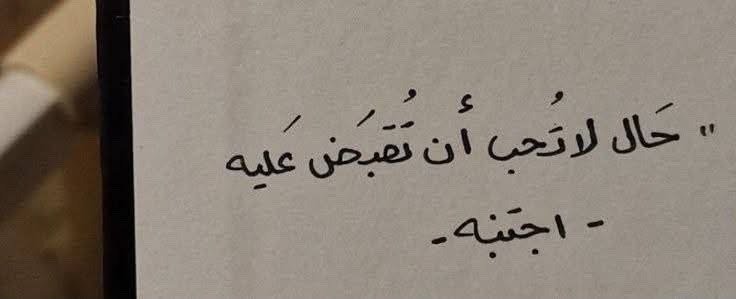 " حَال لا تُحب أن تُقبَض عَليه
- اجتنبه -